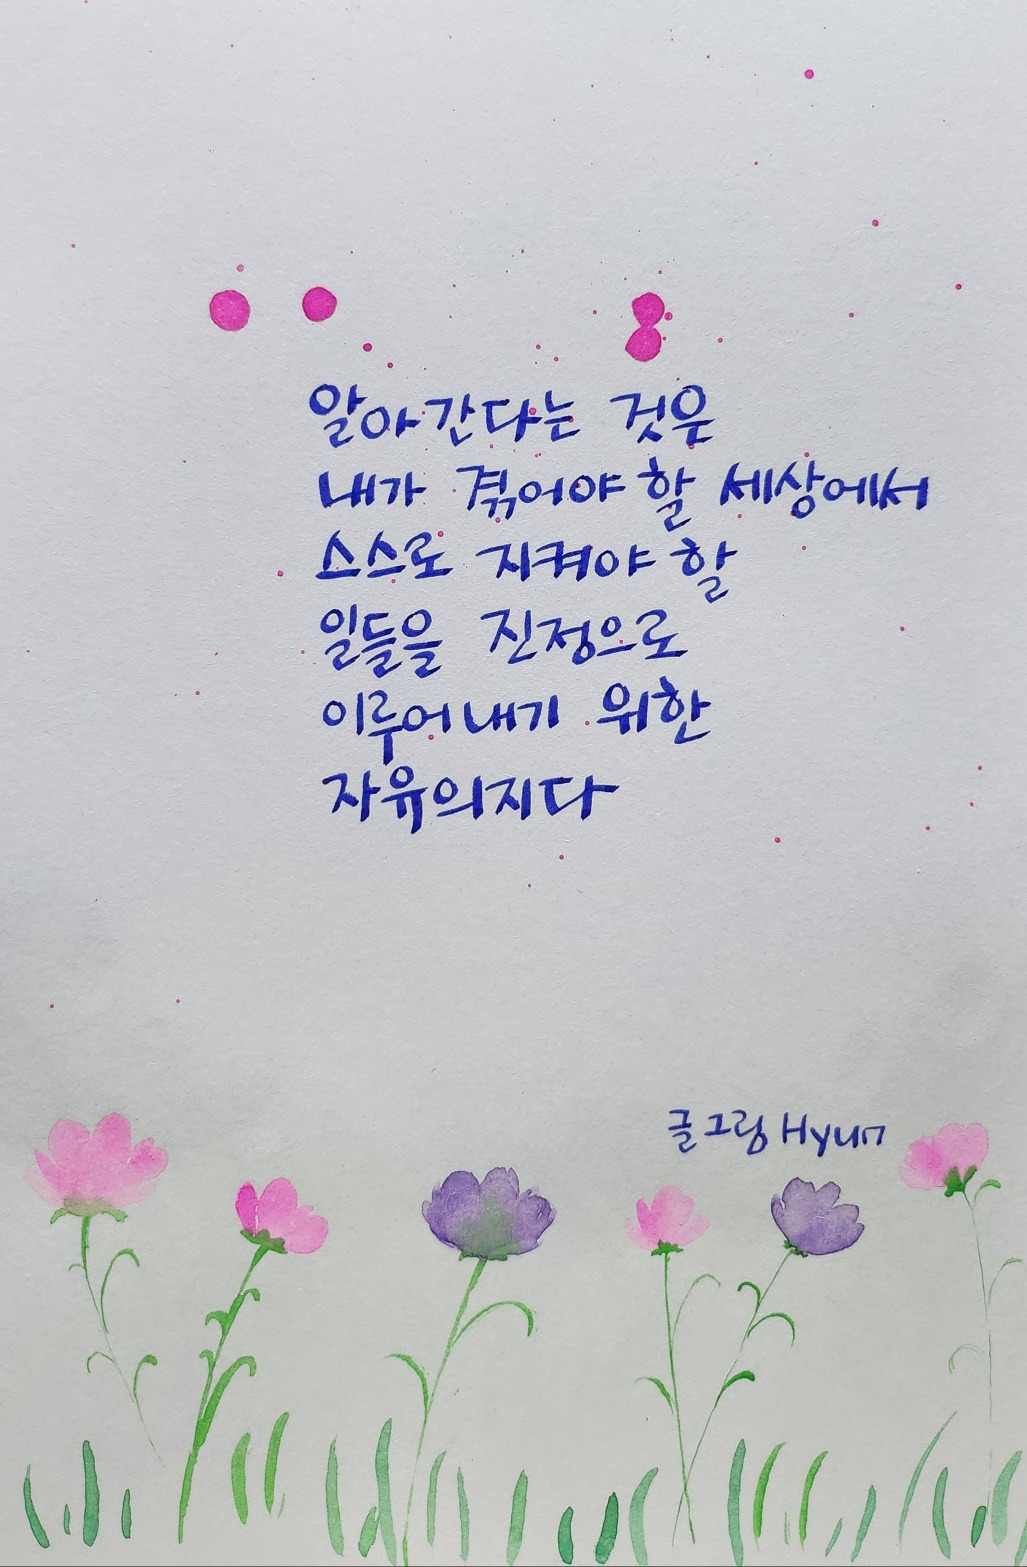 알아간다는 것은
내가 겪어야 할 세상에서
스스로 지켜야 할
일들을 진정으로
이루어내기 위한
자유의지다
글그림 Hyun